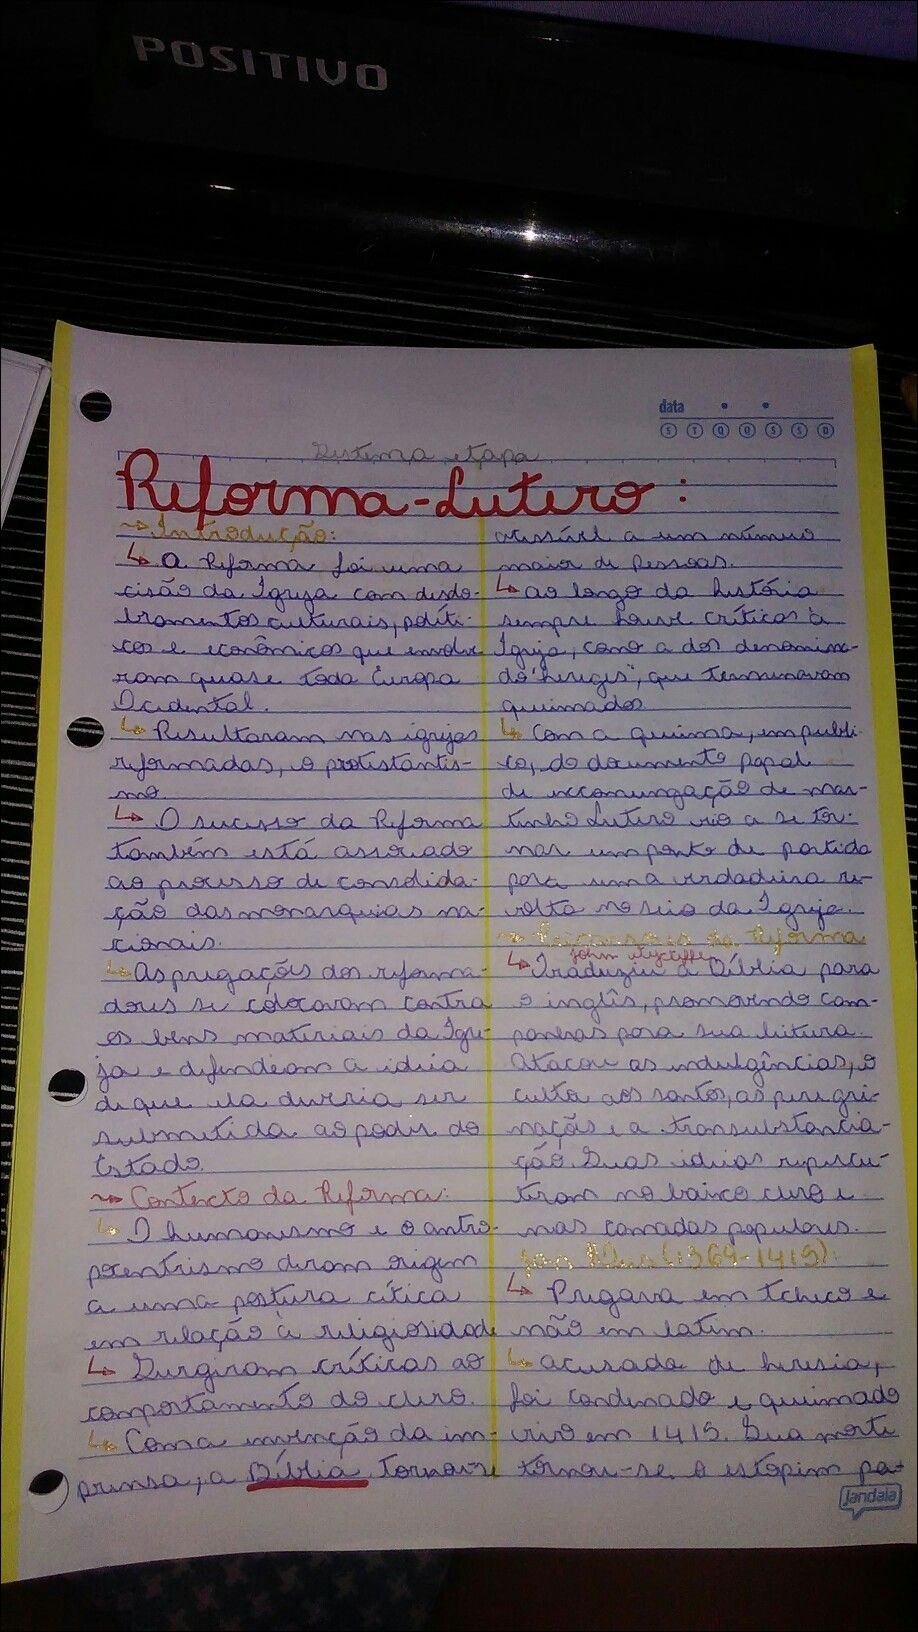 POSITIVO
data
S T Q Q S S D
Sétima etapa
Reforma-Lutero:
~> Introdução:
↳ A Reforma foi uma
cisão da Igreja com desdo-
bramentos culturais, políti-
cos e econômicos que envolve
ram quase toda Europa
Ocidental.
↳ Resultaram nas igrejas
reformadas, o protestantis-
mo.
↳ O sucesso da Reforma
também está associado
ao processo de consolida-
ção das monarquias na-
cionais.
↳ As pregações dos reforma-
dores se colocavam contra
os bens materiais da Igre-
ja e defendeam a ideia
de que ela deveria ser
submetida ao poder do
Estado.
~> Contexto da Reforma:
↳ O humanismo e o antro-
pocentrismo deram origem
a uma postura cítica
em relação à religiosidade
↳ Surgiram críticas ao
comportamento do clero.
↳ Com a invenção da im-
prensa, a Bíblia tornou-se
acessível a um número
maior de pessoas.
↳ ao longo da história
sempre houve críticas à
Igreja, como a dos denomina-
do "hereges", que terminavam
queimados
↳ Com a queima, em públi-
co, do documento papal
de excomungação de Mar-
tinho Lutero vio a se tor-
nar um ponto de partida
para uma verdadeira re-
volta no seio da Igreja.
~> da Reforma
John Wycliffe
↳ Traduziu a Bíblia para
o inglês, promovendo cam-
panhas para sua leitura.
Atacou as indulgências, o
culto aos santos, as peregri-
nações e a transubstancia-
ção. Suas ideias repercu-
tiram no baixo clero e
nas camadas populares.
Jan Hus (1369-1415):
↳ Pregava em tcheco e
não em latim.
↳ acusado de heresia,
foi condenado e queimado
vivo em 1415. Sua morte
tornou-se o estopim pa-
jandaia